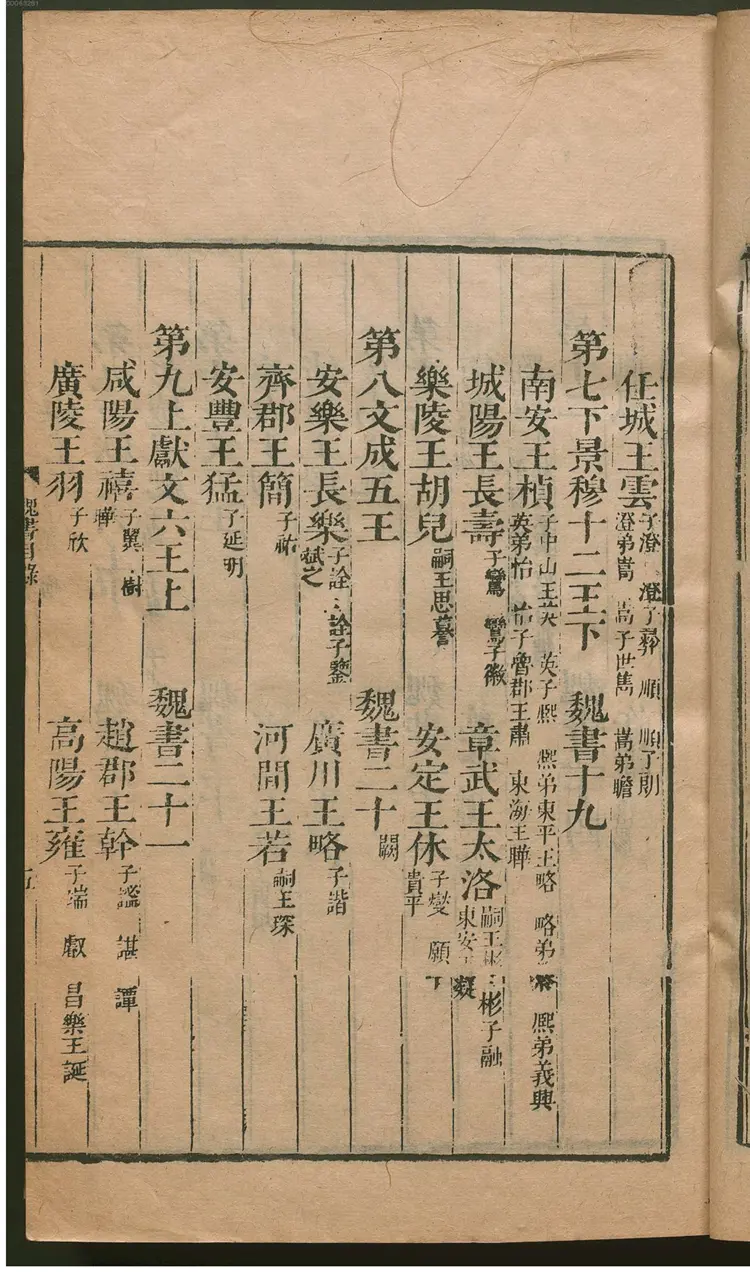 任城王雲 子澄 澄子彝 順 順子則 澄弟嵩 嵩子世雋 嵩弟瞻
第七下景穆十二王下 魏書十九
南安王楨 子中山王英 英子熙 熙弟東平王略 略弟 熙弟義興 英弟怡 怡子魯郡王肅 東海王曄
城陽王長壽 子鸞 鸞子徽 章武王太洛 嗣王彬 彬子融 東安王 凝
樂陵王胡兒 嗣王思譽 安定王休 子燮 願 貴平
第八文成五王 魏書二十 闕
安樂王長樂 子詮 詮子鑒 斌之 廣川王略 子諧
齊郡王簡 子祐 河間王若 嗣王琛
安豐王猛 子延明
第九上獻文六王上 魏書二十一
咸陽王禧 子翼 樹 曄 趙郡王幹 子謐 諶 譚
廣陵王羽 子欣 高陽王雍 子端 叡 昌樂王誕
魏書目錄